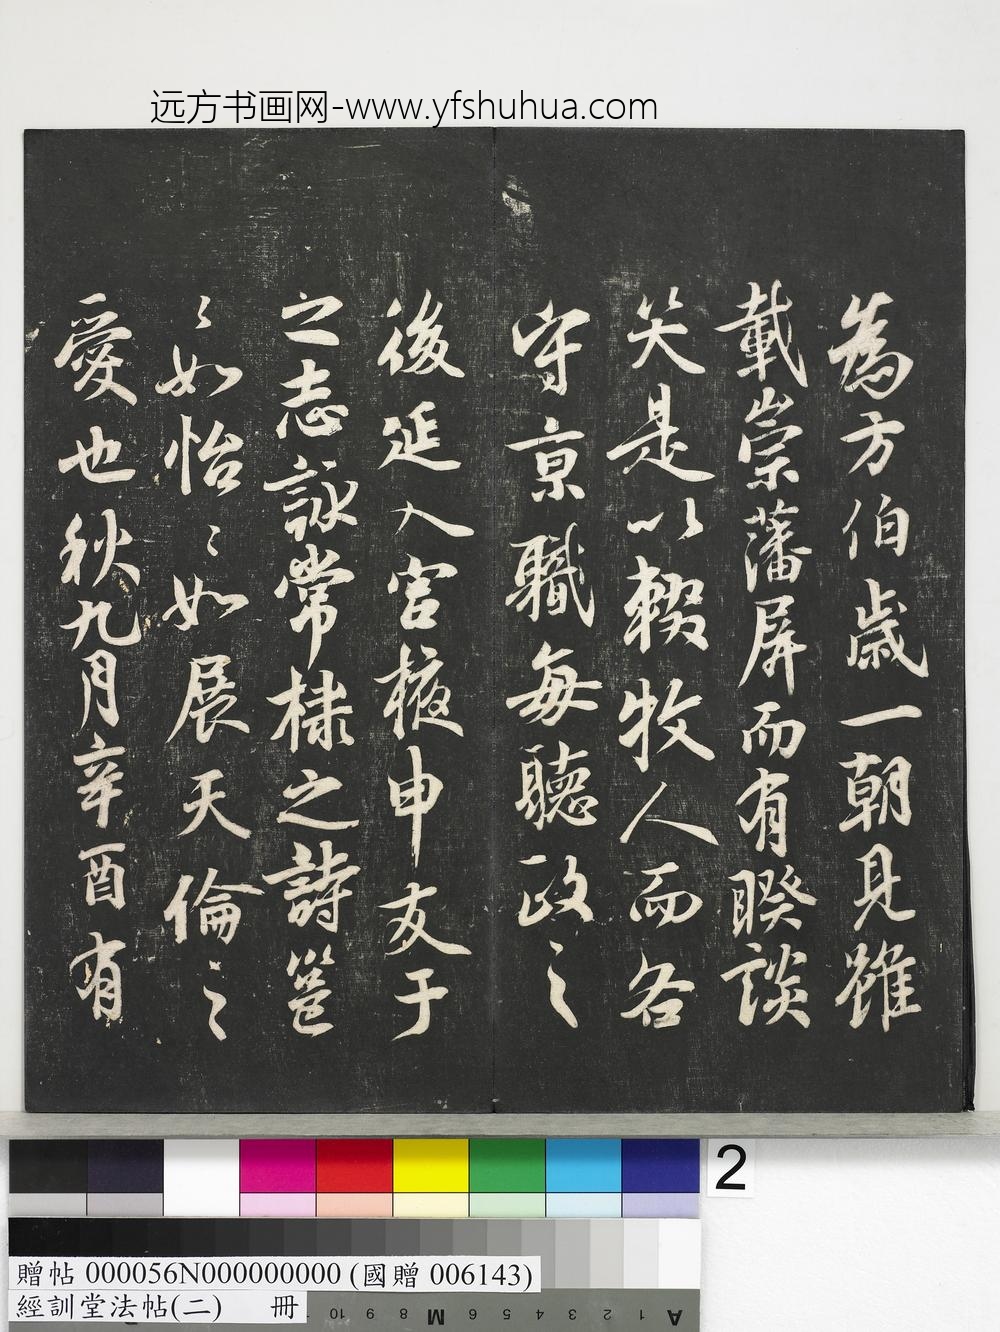 远方书画网-www.yfshuhua.com
為方伯歲一朝見雖
載崇藩屏而有暌談
笑是以輟牧人而各
守京職每聽政之
後延入宮掖申友于
之志詠常棣之詩邕
〻如怡〻如展天倫之
愛也秋九月辛酉有
2
贈帖 000056N000000000 (國贈 006143)
經訓堂法帖(二) 冊
A 1 2 3 4 5 6 M 8 9 10